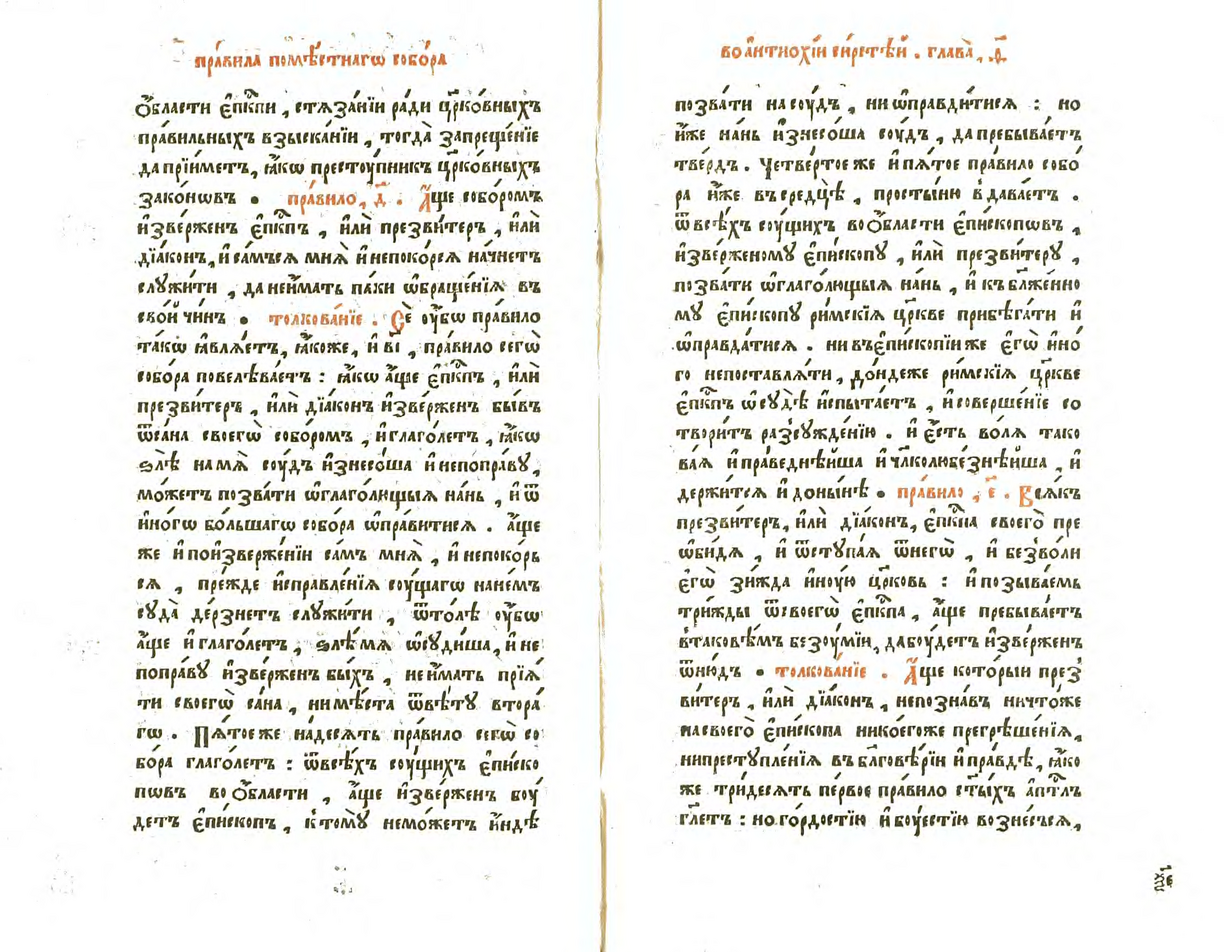 пра́вила помѣ́стнагѡ собо́ра
Ѻ҆́бласти є҆пⷭ҇кпи , стѧза́нїи ради цр҃ко́вныхъ
пра́вильныхъ взыска́нїи , тогда̀ запреще́нїе
да прїи́метъ, ꙗ҆́кѡ престꙋ́пникъ цр҃ко́вныхъ
зако́нѡвъ • пра́вило , д҃ . А҆́ще собо́ромъ
и҆зве́рженъ є҆пⷭ҇кпъ , и҆лѝ презви́теръ , и҆лѝ
дїа́конъ, и҆ са́мъсѧ мнѧ̀ и҆ непокорсѧ начне́тъ
слꙋжи́ти , да неи҆́мать па́ки ѡ҆браще́нїѧ въ
сво́й чи́нъ • толкова́нїе . Сѐ оу҆́бѡ пра́вило
та́кѡ ꙗ҆влѧ́етъ, ꙗ҆́коже, и҆ в҃і , пра́вило сегѡ̀
собо́ра повелѣва́етъ : ꙗ҆́кѡ а҆́ще є҆пⷭ҇кпъ , и҆лѝ
презви́теръ , и҆лѝ дїа́конъ и҆зве́рженъ бы́въ
ѿса́на своегѡ̀ собо́ромъ , и҆ глаго́летъ , ꙗ҆́кѡ
ѕлѣ̀ на мѧ̀ сꙋ́дъ и҆знесо́ша и҆ непопра́вꙋ,
мо́жетъ позва́ти ѡ҆глаго́лющыѧ на́нь , и҆ ѿ
и҆но́гѡ бо́льшагѡ собо́ра ѡ҆пра́витисѧ . а҆́ще
же и҆ поизверже́нїи са́мъ мнѧ̀ , и҆ непокорь
сѧ , пре́жде и҆справле́нїѧ сꙋ́щагѡ на не́мъ
сꙋда̀ де́рзнетъ слꙋжи́ти , ѿто́лѣ оу҆́бѡ
а҆́ще и҆ глаго́летъ , ѕлѣ̀ мѧ̀ ѡ҆сꙋди́ша, и҆ не
попра́вꙋ и҆зве́рженъ бы́хъ , не и҆́мать прїѧ́
ти своегѡ̀ са́на , ни мѣ́ста ѿвѣ́тꙋ втора́
гѡ . Пѧ́тоеже на́десѧть пра́вило сегѡ̀ со
бо́ра глаго́летъ : ѿвсѣ́хъ сꙋ́щихъ є҆пи́ско
пѡвъ во Ѻ҆́бласти , а҆́ще и҆зве́рженъ бꙋ́
детъ є҆пи́скопъ , к томꙋ̀ немо́жетъ и҆́ндѣ
во а҆нтиохі́и си́рстѣй . глава̀ , д҃ .
позва́ти на сꙋ́дъ , ни ѡ҆правди́тисѧ : но
и҆́же на́нь и҆знесо́ша сꙋ́дъ , да пребыва́етъ
тве́рдъ . Четве́ртое же и҆ пѧ́тое пра́вило собо́
ра и҆́же въ средцѣ̀ , просты́ню вдава́етъ .
ѿ всѣ́хъ сꙋ́щихъ во Ѻ҆́бласти є҆пи́скопѡвъ ,
и҆зве́рженомꙋ є҆пи́скопꙋ , и҆лѝ презви́терꙋ ,
позва́ти ѡ҆глаго́лющыѧ на́нь , и҆ къ бл҃же́нно
мꙋ є҆пи́скопꙋ ри́мскїѧ цр҃кве прибѣга́ти и҆
ѡ҆правда́тисѧ . ни въ є҆пископі́и же є҆гѡ̀ и҆но́
го непоставлѧ́ти , до́ндеже ри́мскїѧ цр҃кве
є҆пⷭ҇кпъ ѡ҆сꙋдѣ̀ и҆спыта́етъ , и҆ соверше́нїе со
твори́тъ разсꙋжде́нїю . и҆ є҆́сть во́лѧ тако
ва́ѧ и҆ пра́веднѣйша и҆ чл҃колюбе́знѣйша , и҆
держи́тсѧ и҆ доны́нѣ • пра́вило , є҃ . Всѧ́къ
презви́теръ, и҆лѝ дїа́конъ, є҆пⷭ҇кпа своего̀ пре
ѡ҆би́дѧ , и҆ ѿстꙋпа́ѧ ѿнегѡ̀ , и҆ безво́ли
є҆гѡ̀ зи́жда и҆нꙋ́ю цр҃ковь : и҆ позыва́емь
три́жды ѿсвоегѡ̀ є҆пⷭ҇кпа , а҆́ще пребыва́етъ
в тако́вѣмъ безꙋ́мїи, да бꙋ́детъ и҆зве́рженъ
ѿню́дъ • толкова́нїе . А҆́ще кото́рыи през
витеръ , и҆лѝ дїа́конъ , непозна́въ ничто́же
на своего̀ є҆пи́скопа нико́егоже прегрѣше́нїѧ ,
ни престꙋпле́нїѧ въ бл҃говѣ́рїи и҆ пра́вдѣ , ꙗ҆́ко
же три́десѧть пе́рвое пра́вило ст҃ы́хъ а҆пⷭ҇тлъ
гл҃етъ : но го́рдостїю и҆ бꙋ́естїю возне́сьсѧ ,